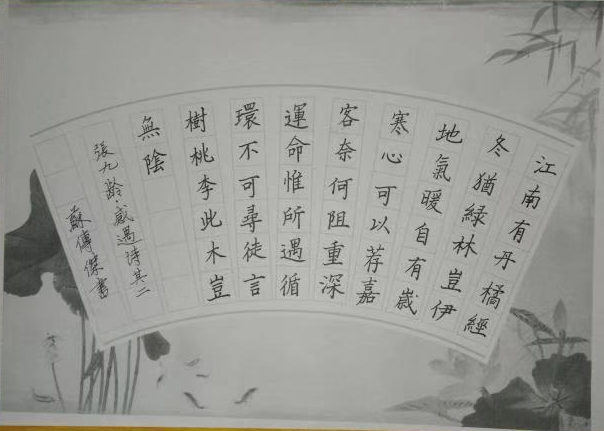 江南有丹橘經
冬猶緑林豈伊
地氣暖自有歲
寒心可以荐嘉
客奈何阻重深
運命惟所遇循
環不可尋徒言
樹桃李此木豈
無陰
張九齡·感遇詩其二
蘇傳傑書